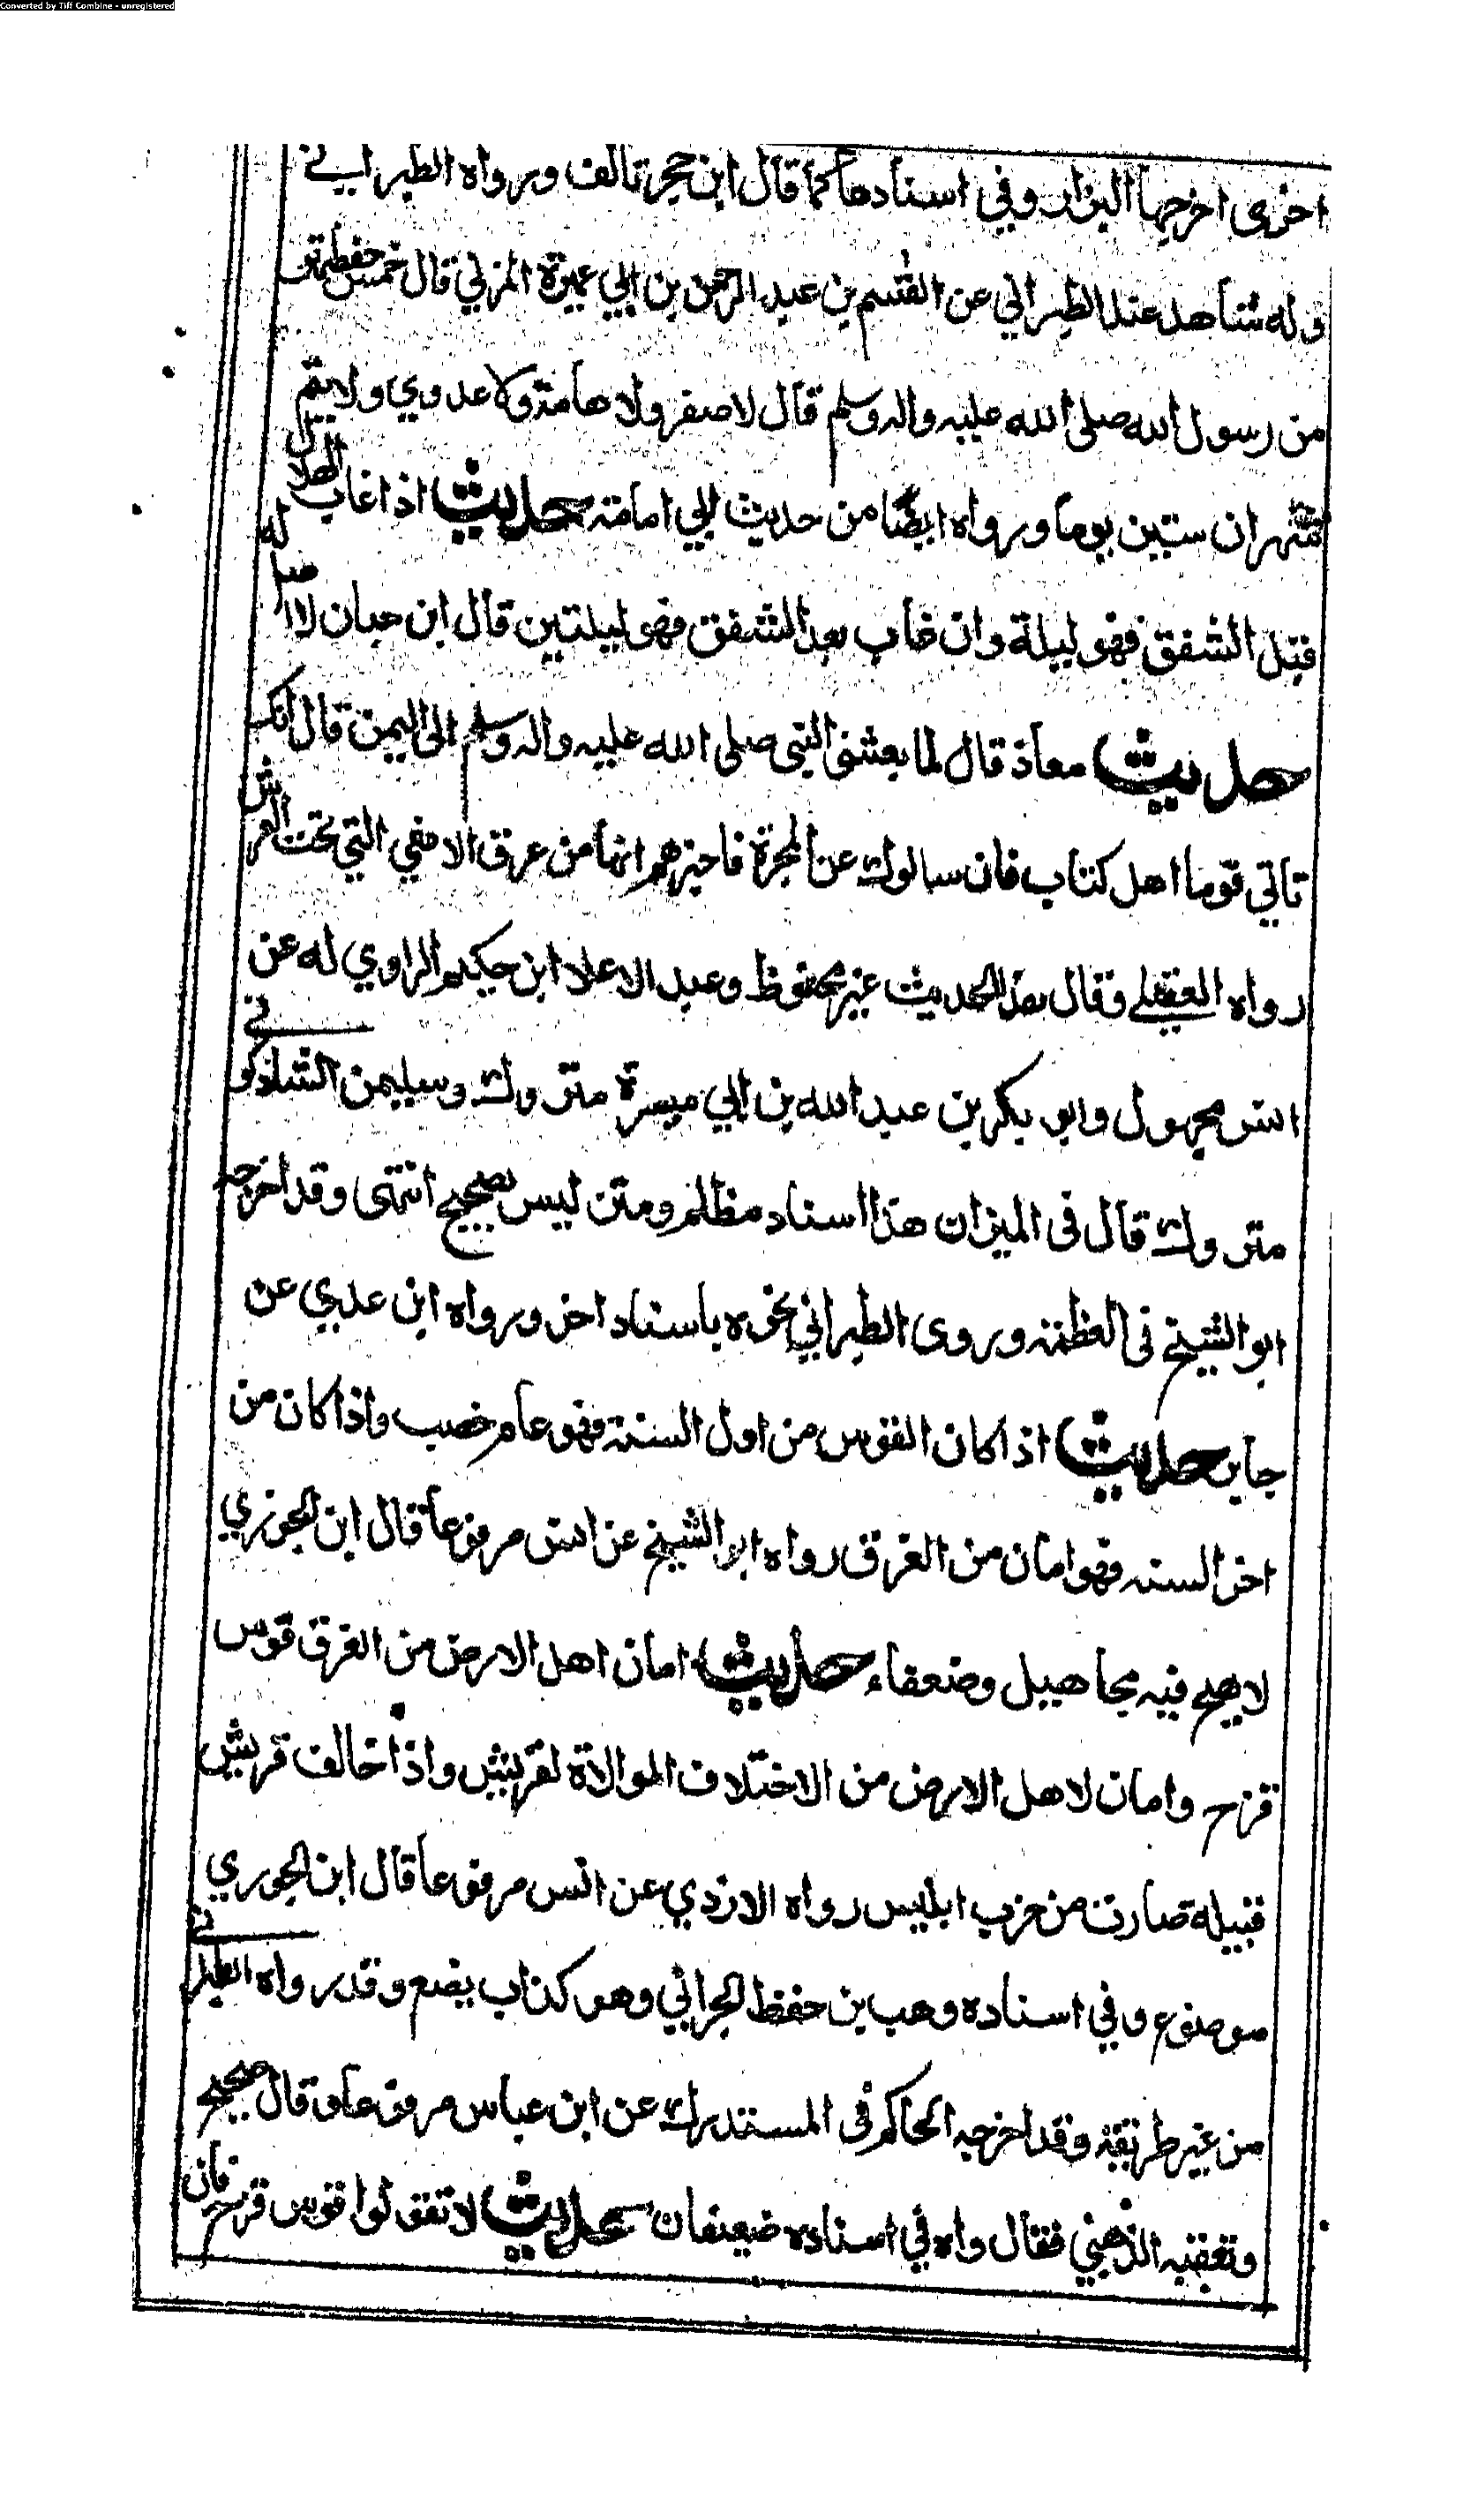 Converted by Tiff Combine - unregistered
اخرى اخرجها البزار وفي اسنادها كما قال ابن حجر تالف ورواه الطبراني
وله شاهد عند الطبراني عن القسم بن عبد الرحمن بن ابي عميرة المزني قال خمس حفظتهن
من رسول الله صلى الله عليه واله وسلم قال لا صفر ولا هامة ولا عدوي ولا يتم
شهران ستين يوما ورواه ايضا من حديث ابي امامة حديث اذا غاب الهلال
قبل الشفق فهو ليلة وان غاب بعد الشفق فهو ليلتين قال ابن حبان لا اصل له
حديث معاذ قال لما بعثني النبي صلى الله عليه واله وسلم الى اليمن قال انك
تاتي قوما اهل كتاب فان سالوك عن المجرة فاخبرهم انها من عرق الافعي التي تحت العرش
رواه العقيلي وقال هذا الحديث غير محفوظ وعبد الاعلا ابن حكيم الراوي له عن
انس مجهول وابو بكر بن عبد الله بن ابي ميسرة متروك وسليمن الشاذكوني
متروك قال في الميزان هذا اسناد مظلم ومتن ليس بصحيح انتهى وقد اخرجه
ابو الشيخ في العظمة وروى الطبراني نحوه باسناد اخر ورواه ابن عدي عن
جابر حديث اذا كان القوس من اول السنة فهو عام خصب واذا كان من
اخر السنه فهو امان من الغرق رواه ابو الشيخ عن انس مرفوعا قال ابن الجوزي
لا يصح فيه مجاهيل وضعفاء حديث امان اهل الارض من الغرق قوس
قزح وامان لاهل الارض من الاختلاف الموالاة لقريش واذا خالف قريش
قبيلة صارت من حزب ابليس رواه الازدي عن انس مرفوعا قال ابن الجوزي
موضوع وفي اسناده وهب بن حفظ الحراني وهو كذاب يضع وقد رواه الطبراني
من غير طريقه وقد اخرجه الحاكم في المستدرك عن ابن عباس مرفوعا وقال صحيح
وتعقبه الذهبي فقال واه في اسناده ضعيفان حديث لا تقولوا قوس قزح فان